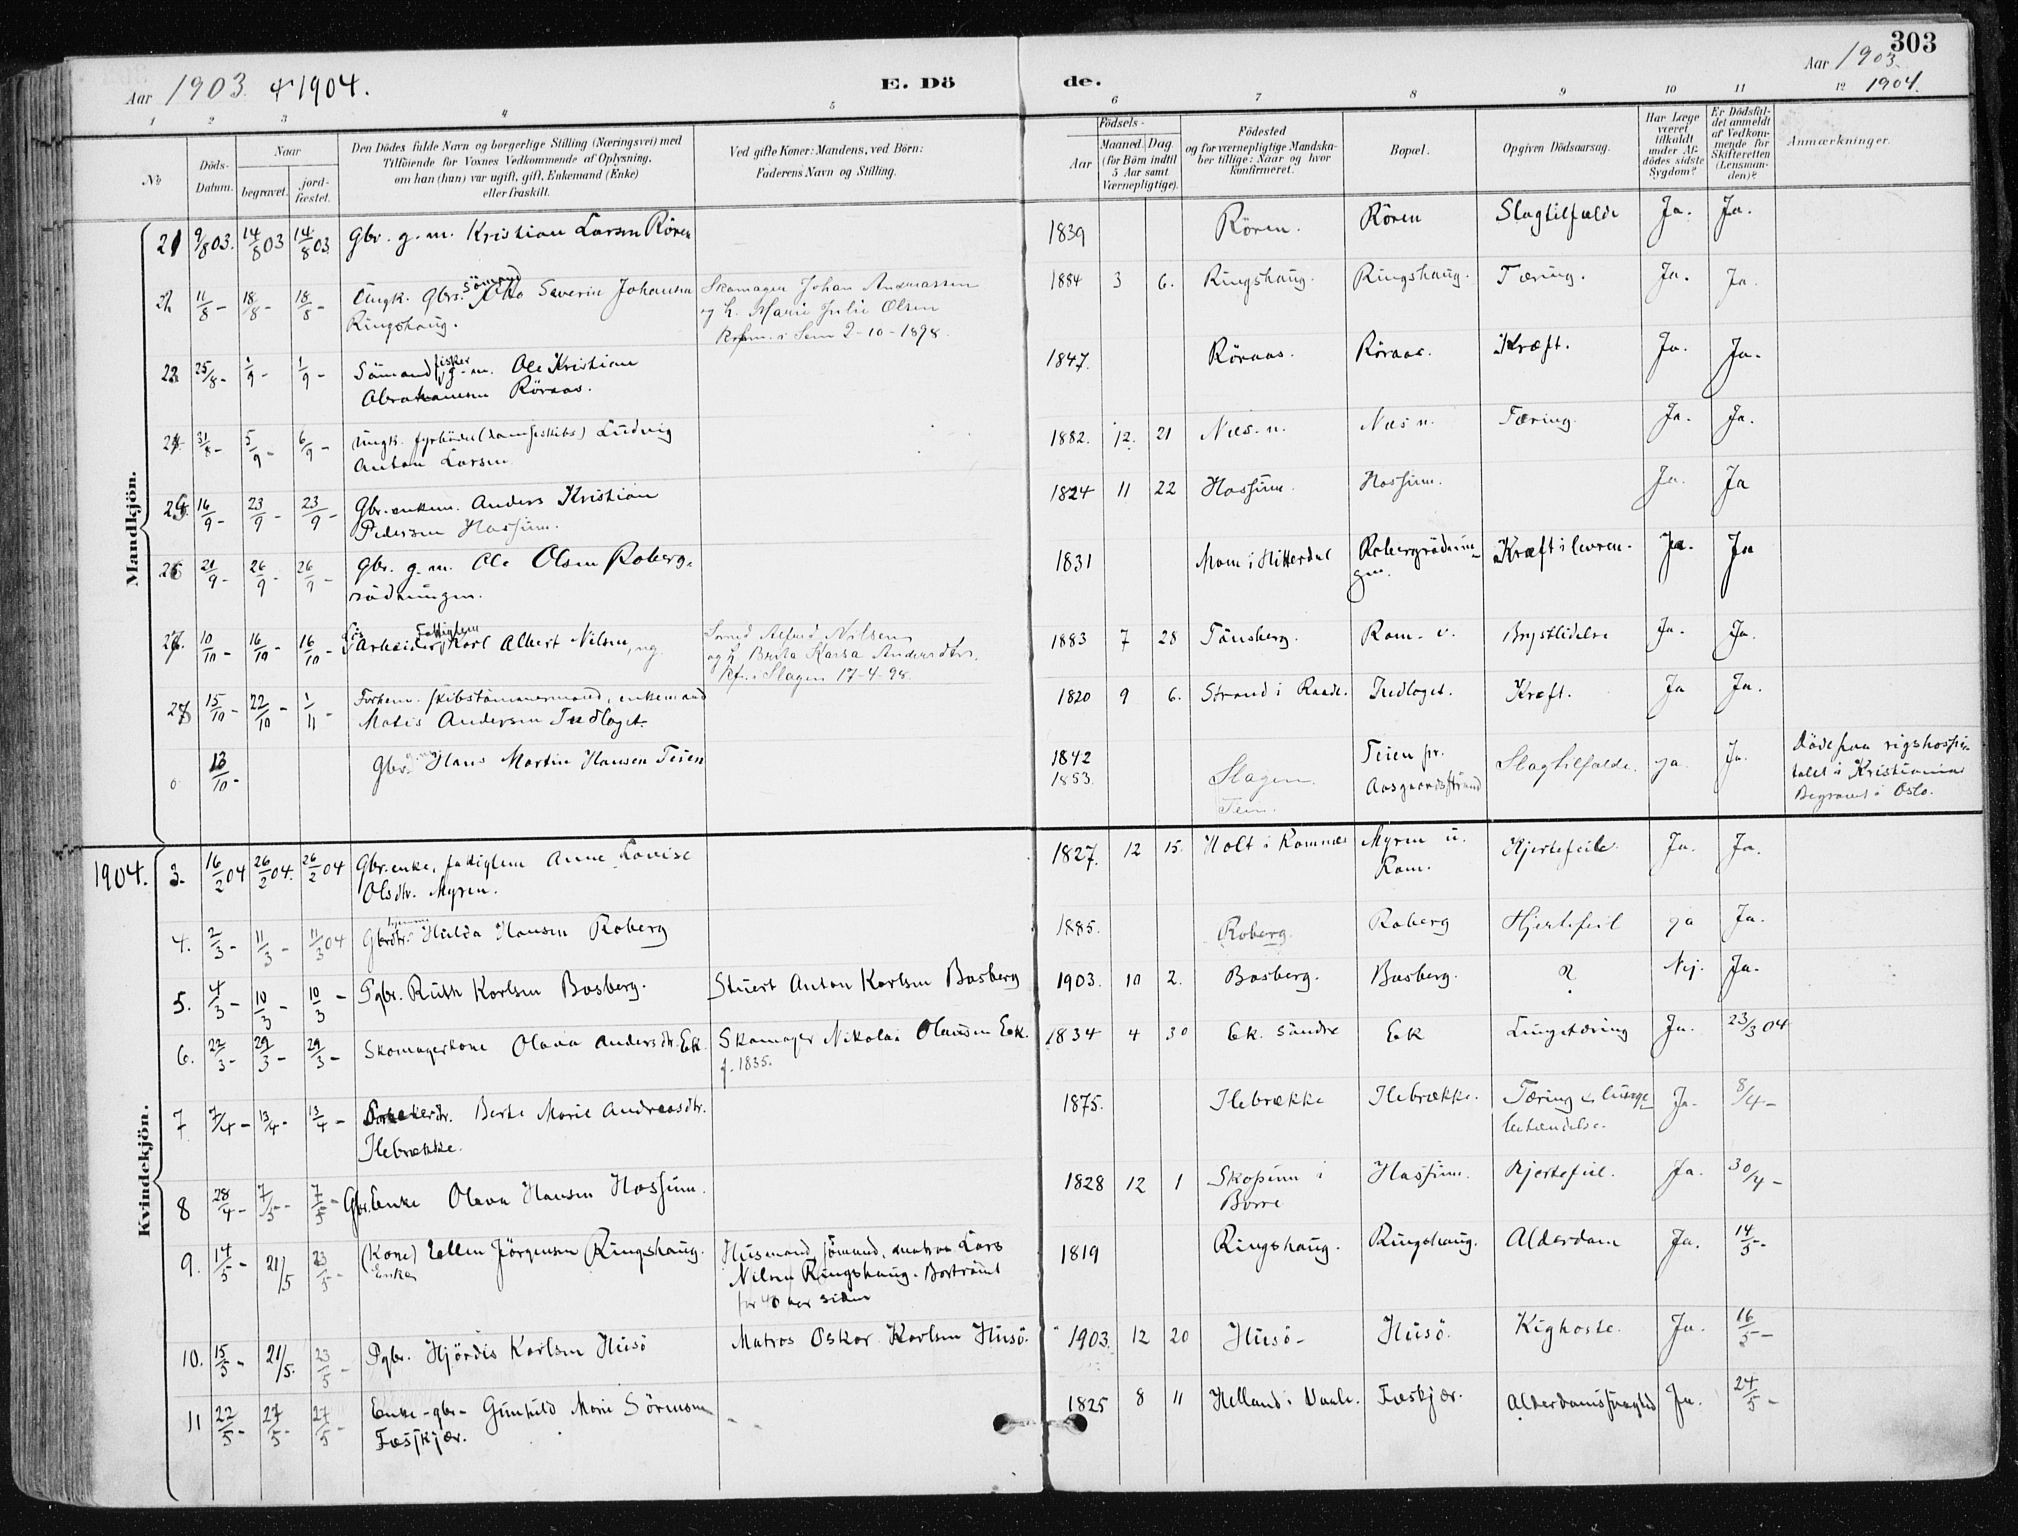 303
Aar 1903. & 1904.
E. Dö
de.
Aar 1903.
1904.
1 2 3 4 5 6 7 8 9 10 11 12
No
Döds-
Datum.
Naar
begravet.
jord-
fæstet.
Den Dödes fulde Navn og borgerlige Stilling (Næringsvei) med
Tilföiende for Voxnes Vedkommende af Oplysning,
om han (hun) var ugift, gift, Enkemand (Enke)
eller fraskilt.
Ved gifte Koner: Mandens, ved Börn:
Faderens Navn og Stilling.
Födsels-
Aar
Maaned. Dag.
(for Börn indtil
5 Aar samt
Værnepligtige).
Födested
og for værnepligtige Mandska-
ber tillige: Naar og hvor
konfirmeret.
Bopæl.
Opgiven Dödsaarsag.
Har Læge
været
tilkaldt
under Af-
dödes sidste
Sygdom?
Er Dödsfal-
det anmeldt
af Vedkom-
mende for
Skifteretten
(Lensman-
den)?
Anmærkninger.
Mandkjön.
21 9/8 03. 14/8 03 14/8 03. Gbr. g. m. Kristian Larsen Rören 1839 Rören. Rören Slagtilfælde Ja. Ja.
22 11/8 - 18/8 - 18/8 - Ungk. Gbrs. sömand Otto Severin Johansen Skomager Johan Andreassen 1884 3 6. Ringshaug. Ringshaug. Tæring. Ja. Ja.
Ringshaug. og h. Marie Julie Olsen
Kofirm. i Sem 2-10-1898.
23. 25/8 - 1/9 - 1/9 - Sömand, fisker g. m. Ole Kristian 1847. Röraas. Röraas. Kræft. Ja. Ja.
Abrahamsen Röraas.
24. 31/8 - 5/9 - 6/9 - Ungk. fyrböder (dampskibs) Ludvig 1882. 12. 21 Næs. n. Næs n. Tæring. Ja. Ja.
Anton Larsen
25. 16/9 - 23/9 - 23/9 - Gbr. enkem. Anders Kristian 1824 11 22 Hassum. Hassum. Ja. Ja
Pedersen Hassum.
26 21/9 - 26/9 - 26/9 - Gbr. g. m. Ole Olsen Roberg- 1831 Moen i Hitterdal Robergrödnin- Kræft i levren. Ja. Ja
rödningen. gen.
27. 10/10 - 16/10 - 16/10 - Arbeider, Fattiglem Karl Albert Nilsen, ug. Smed Alfred Nilsen 1883 7 28 Tönsberg. Ram. v. Brystlidelse Ja. Ja.
og h. Berta Karsa Andersdtr.
Kf. i Slagen 17-4-98.
28 15/10 - 22/10 - 1/11 - Forhem. skibstömmermand, enkemand 1820 9 6. Strand i Raade. Indlaget. Kræft. Ja Ja.
Matis Andersen Indlaget.
0 13/10 - Gbr. Hans Martin Hansen Teien 1842 Slagen. Teien pr. Slagtilfælde. ja Ja. Döde paa rigshospi-
1853. Teien. Aasgaardsstrand talet i Kristiania
Begravet i Oslo.
1904.
Kvindekjön.
3. 16/2 04 26/2 04. 26/2 04 Gbr. enke, fattiglem Anne Lovise 1827. 12 15. Holt i Ramnæs Myren u. Hjertefeil. Ja. Ja.
Olsdtr. Myren. Ram.
4. 2/3 - 11/3 - 11/3 04 Gbrdtr. Hulda Hansen Roberg 1885. Roberg. Roberg Hjertefeil ja Ja.
5. 4/3 - 10/3 - 10/3 - Pgbr. Ruth Karlsen Basberg. Stuert Anton Karlsen Basberg 1903. 10 2. Basberg. Basberg. ? Nej. Ja.
6. 22/3 - 29/3 - 29/3 - Skomagerkone Olava Andersdtr. Eek. Skomager Nikolai Olausen Eek. 1834 4 30 Ek. söndre Ek Lungetæring Ja. 23/3 04
f. 1835.
7 7/4 - 13/4 - 13/4 - Berte Marie Andreasdtr. 1875. Ilebrække Ilebrække. Tæring & lunge- Ja. 8/4 -
Ilebrække. betændelse.
8 28/4 - 7/5 - 7/5 - Gbr. Enke Olava Hansen Hassum. 1828 12 1 Skopum i Hassum. Hjertefeil. Ja. 30/4 -
Borre
9. 14/5 - 21/5 23/5 - (Kone) Ellen Jörgensen Ringshaug. Husmand, sömand, matros Lars 1819 Ringshaug. Ringshaug. Alderdom Ja. 14/5 -
Enke Nilsen Ringshaug. Bortrömt
for 40 aar siden
10. 15/5 - 21/5. 23/5 - Pgbr. Hjördis Karlsen Husö Matros Oskar Karlsen Husö. 1903. 12 20 Husö - Husö. Kighoste. Ja. 16/5 -
11 22/5 - 27/5 - 27/5 - Enke - gbr - Gunhild Marie Sörensen - 1825 8 11 Helland i Vaale. Fæskjær. Alderdomssvaghed Ja. 24/5 -
Fæskjær.